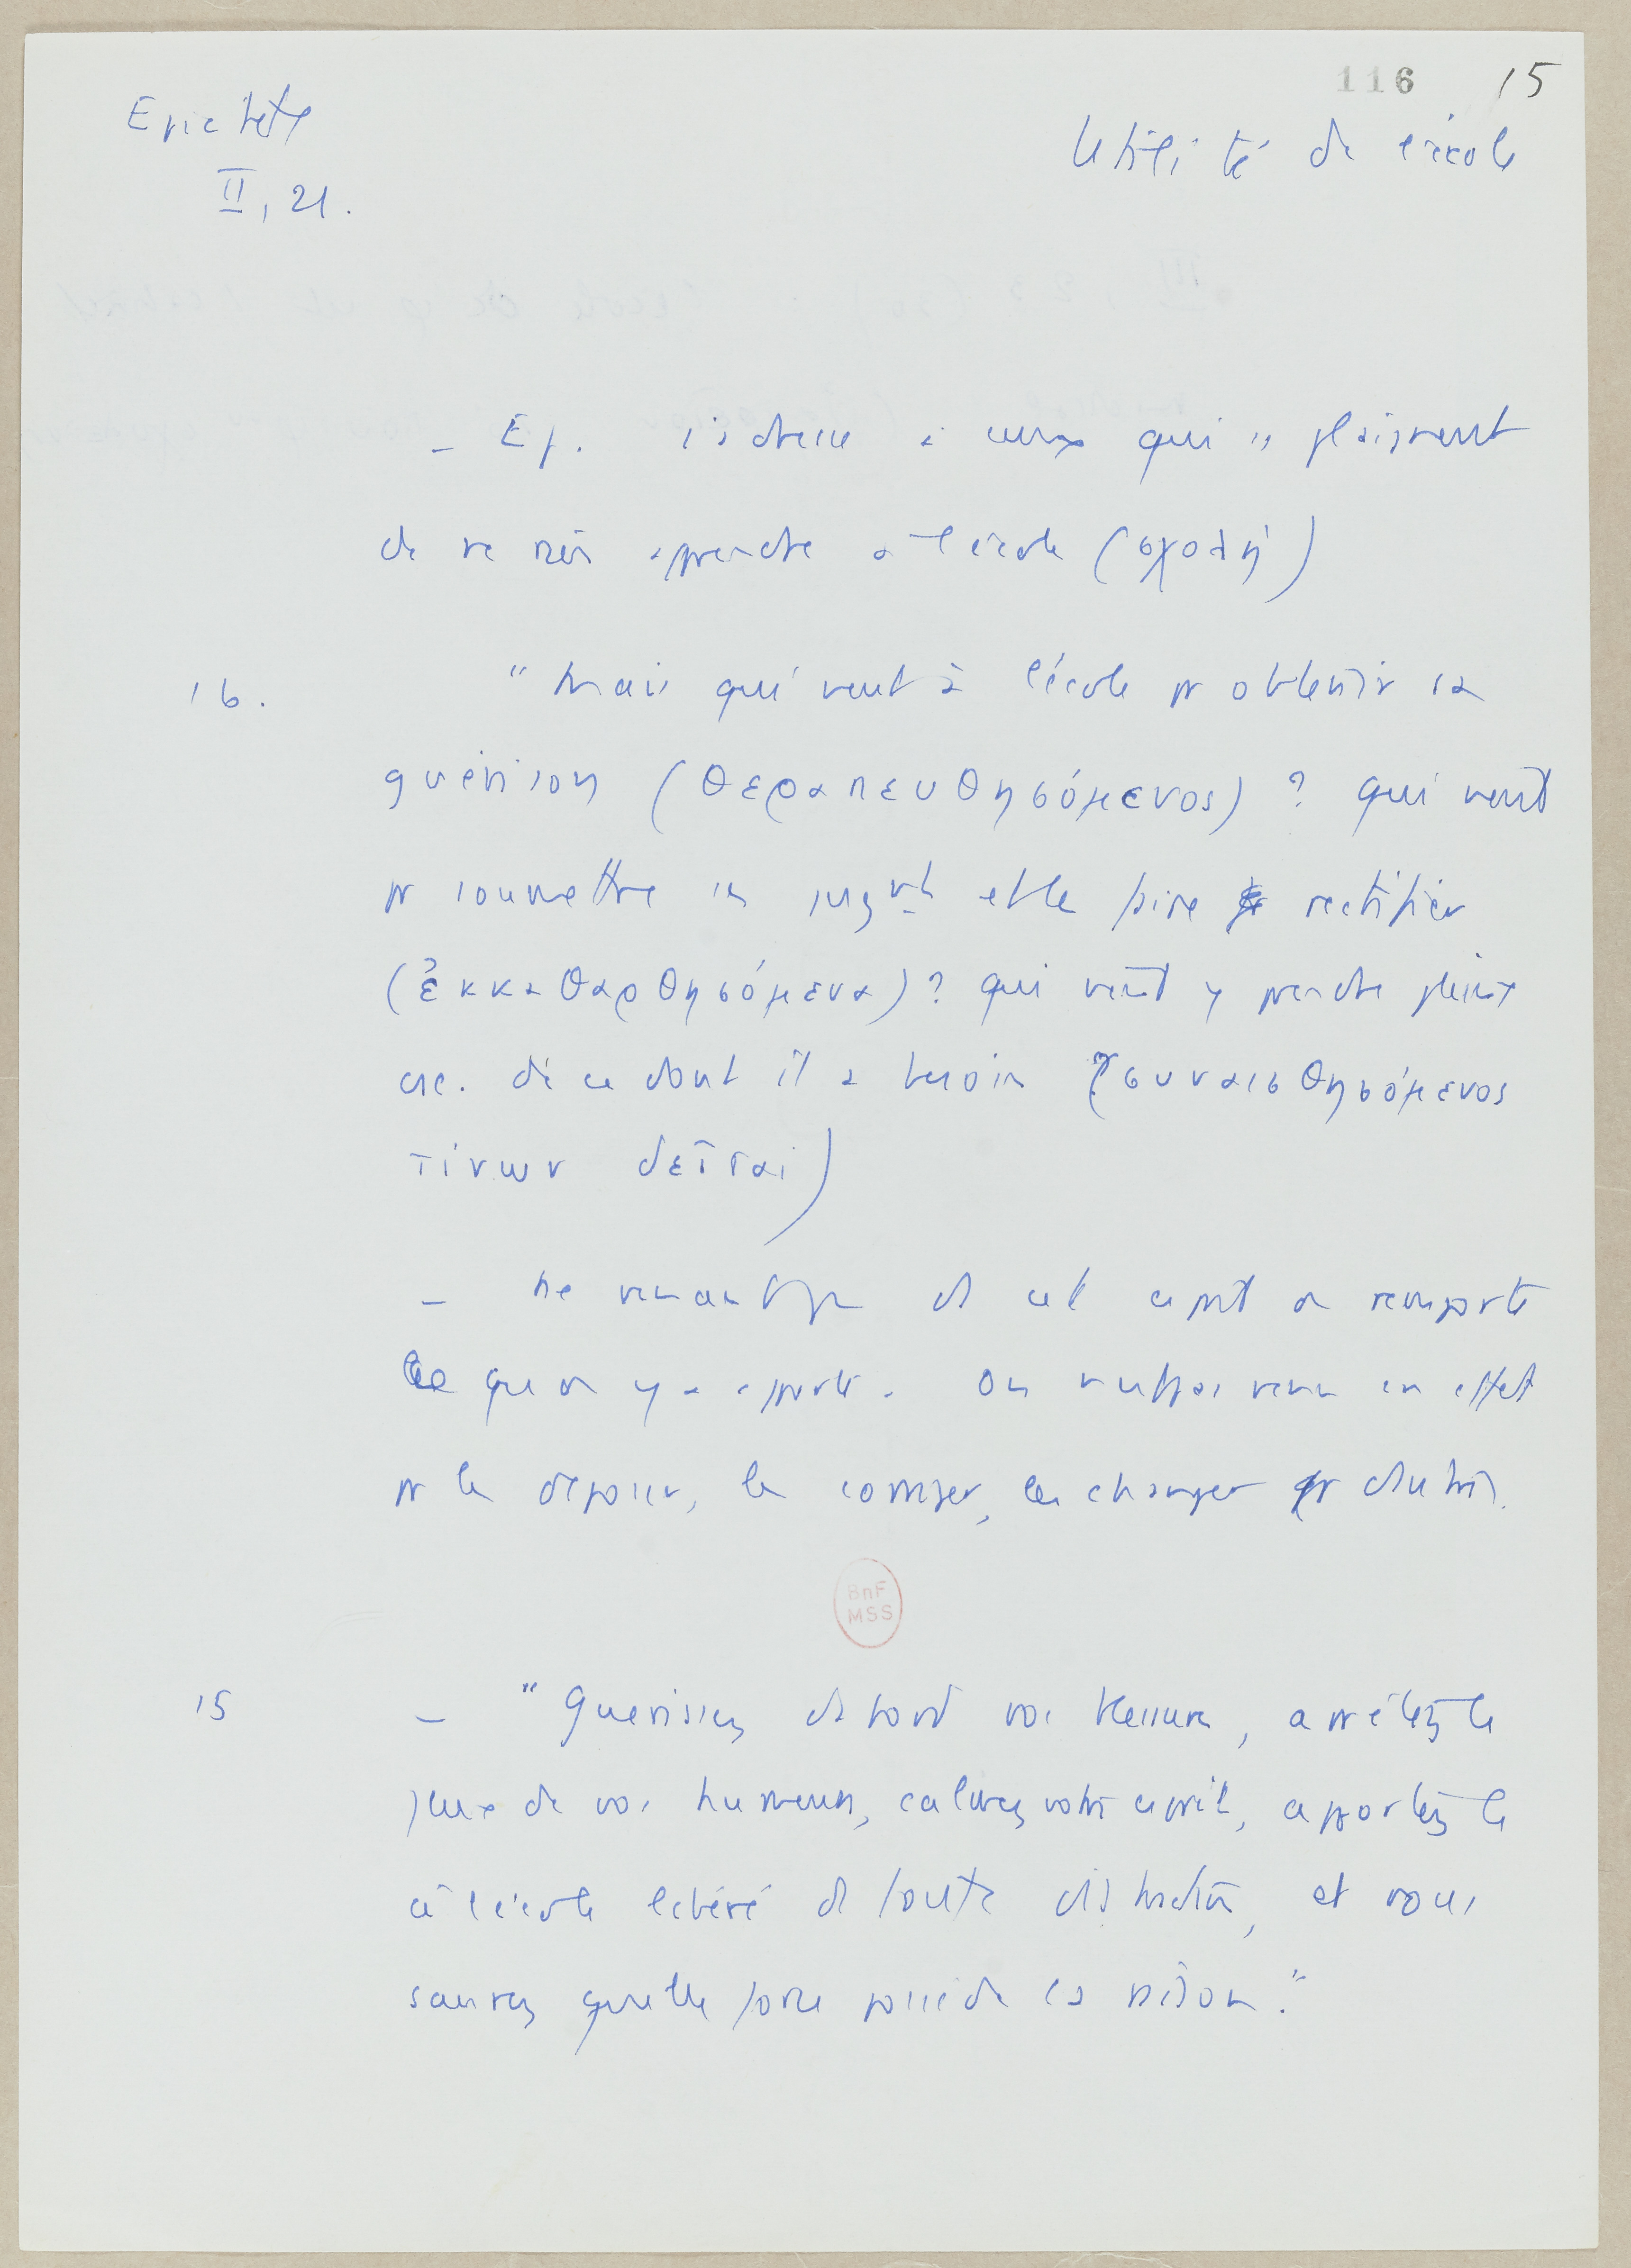 116 15
Epictete
Utilité de l'école
II, 21.
– Ep. s'adresse à ceux qui se plaignent
de ne rien apprendre à l'école (σχολή)
16. "Mais qui vient à l'école pr obtenir sa
guérison (θεραπευθησόμενος) ? qui vient
pr soumettre ses jugmts et les faire rectifier
(ἐκκαθαρθησόμενα) ? qui vient y prendre pleine
csc. de ce dont il a besoin (συναισθησόμενος
τίνων δεῖται)
– ds cet esprit on remporte
ce que on y a apporté. On n'est pas venu en effet
pr les déposer, les corriger, les changer pr d'autres.
BnF
MSS
15 – "Guérissez d'abord vos blessures, arrêtez le
flux de vos humeurs, calmez votre esprit, apportez le
à l'école libéré de toute distraction, et vous
saurez quelle force possède la raison."